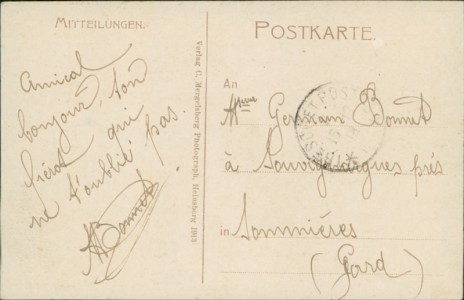 MITTEILUNGEN.
POSTKARTE.
Amical
bonjour, ton
frérot qui
ne t'oublie pas.
ABonnet
Verlag C. Hergelsberg Photograph, Heinsberg 1913
An
Mme Germain Bonnet
à Souvignargues prés
in Sommiéres
(Gard)